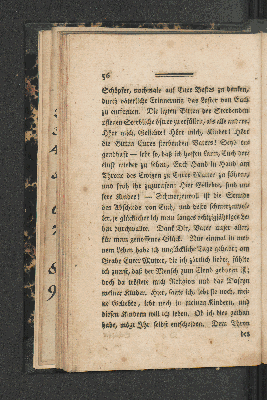 56
Schöpfer, nochmals auf Euer Bestes zu denken,
durch väterliche Erinnerung das Laster von Euch
zu entfernen. Die letzten Bitten der Sterbenden
pflegen Sterbliche öfter zu erfüllen, als alle andere.
Hört mich, Geliebte! Hört mich, Kinder! Hört
die Bitten Eures sterbenden Vaters! Seyd
— lebt so, daß ich hoffen kann, Euch dort
einst wieder zu sehen, Euch Hand in Hand am
Throne des Ewigen zu Eurer Mutter zu führen,
und froh ihr zuzurufen: Hier Geliebte, sind uns
sere Kinder! — Schmerzenvoll ist die Stunde
des Abschieds von Euch, und desto schmerzvoll
ler, je glücklicher ich mein langes achtzigjähriges Le
ben durchwallte. Dank Dir, Vater aller aller,
für mein genossenes Glück. Nur einmal in mei
nem Leben habe ich unglückliche Tage gehabt: am
Grabe Eurer Mutter, die ich zärtlich liebte, fühlte
ich zuerst, daß der Mensch zum Elend geboren ist;
doch da tröstete mich Religion und das Daseyn
meiner Kinder. Hier, sagte ich, lebt sie noch, mei
ne Geliebte, lebt noch in meinen Kindern, und
diesen Kindern will ich leben. Ob ich dies gethan
habe, mögt Ihr selbst entscheiden. Dem Thron
des